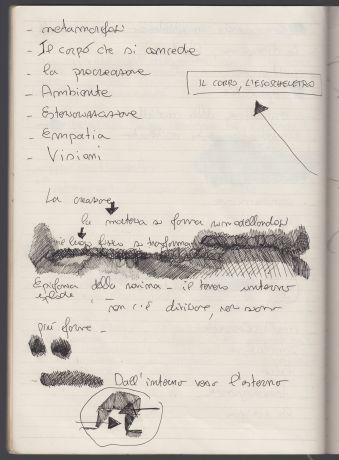 - metamorfosi
- Il corpo che si concede
- la procreazione
- Ambiente
- Esteriorizzazione
- Empatia
- Visioni
IL CORPO, L'ESOSCHELETRO
La creazione
la materia si forma rimodellandosi
il luogo fisico si trasforma
Epifania della rovina - il interno
esplode
non c'è divisione, non sono
più forme -
Dall'interno verso l'esterno